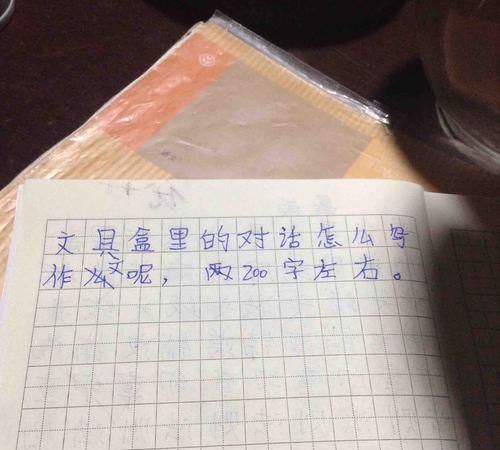 文具盒里的对话怎么写
作文呢，两200字左右。